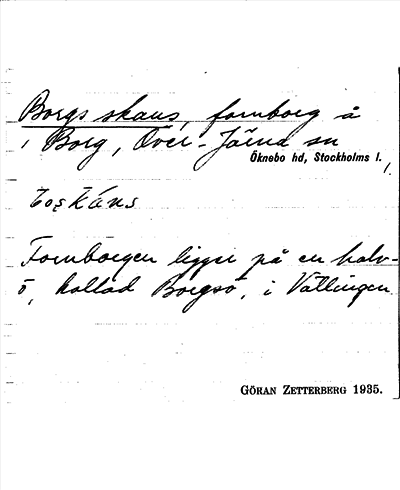 Borgs skans, fornborg å
i Borg, Över-Järna sn
Öknebo hd, Stockholms l.
Fornborgen ligger på en halv-
ö, kallad Borgsö, i Vällingen.
GÖRAN ZETTERBERG 1935.